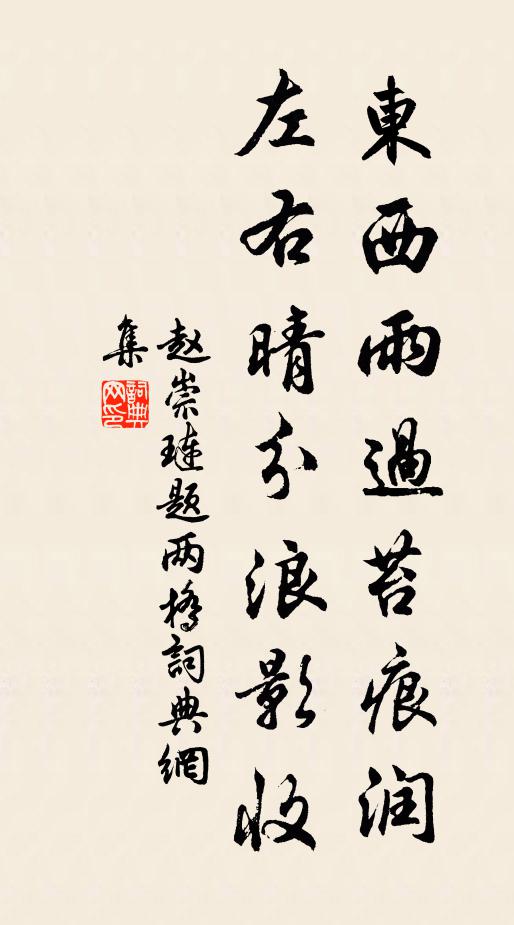 東西雨過苔痕润
左右晴分浪影收
赵崇璉题两橋詞典網
集
詞典网印